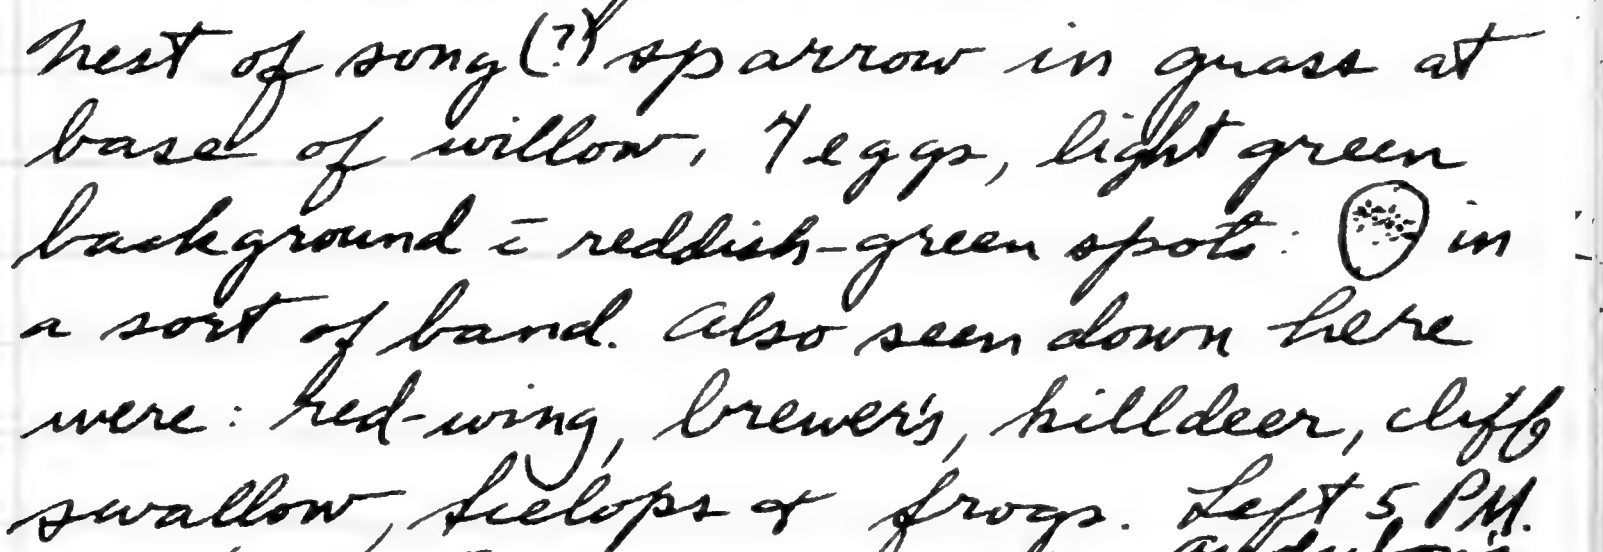 Nest of song (?) sparrow in grass at
base of willow. 4 eggs, light green
background c̄ reddish-green spots: in
a sort of band. Also seen down here
were: red-wing, brewer's, killdeer, cliff
swallow, & frogs. Left 5 PM.